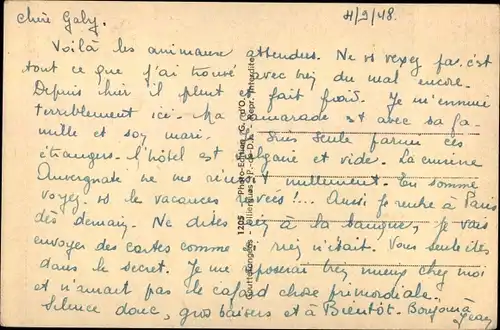 Chère Gaby.
4/9/48.
Voilà les animaux attendus. Ne vs vexez pas, c'est
tout ce que j'ai trouvé avec bien du mal encore.
Depuis hier il pleut et fait froid. Je m'ennuie
terriblement ici. Ma camarade est avec sa fa
mille et son mari. Suis seule parmi ces
étrangers. L'hôtel est et vide. La cuisine
Auvergnate ne me réussit nullement. En somme
voyez vs les vacances rêvées!... Aussi je rentre à Paris
dès demain. Ne dites rien à la banque, je vais
envoyer des cartes comme si rien n'était. Vous seule êtes
dans le secret. Je me reposerai bien mieux chez moi
et n'aurai pas le cafard chose primordiale.
Silence donc, gros baisers et à Bientôt. Bonjour à Jean
1205 Photo-Edition
Repr. Interdite